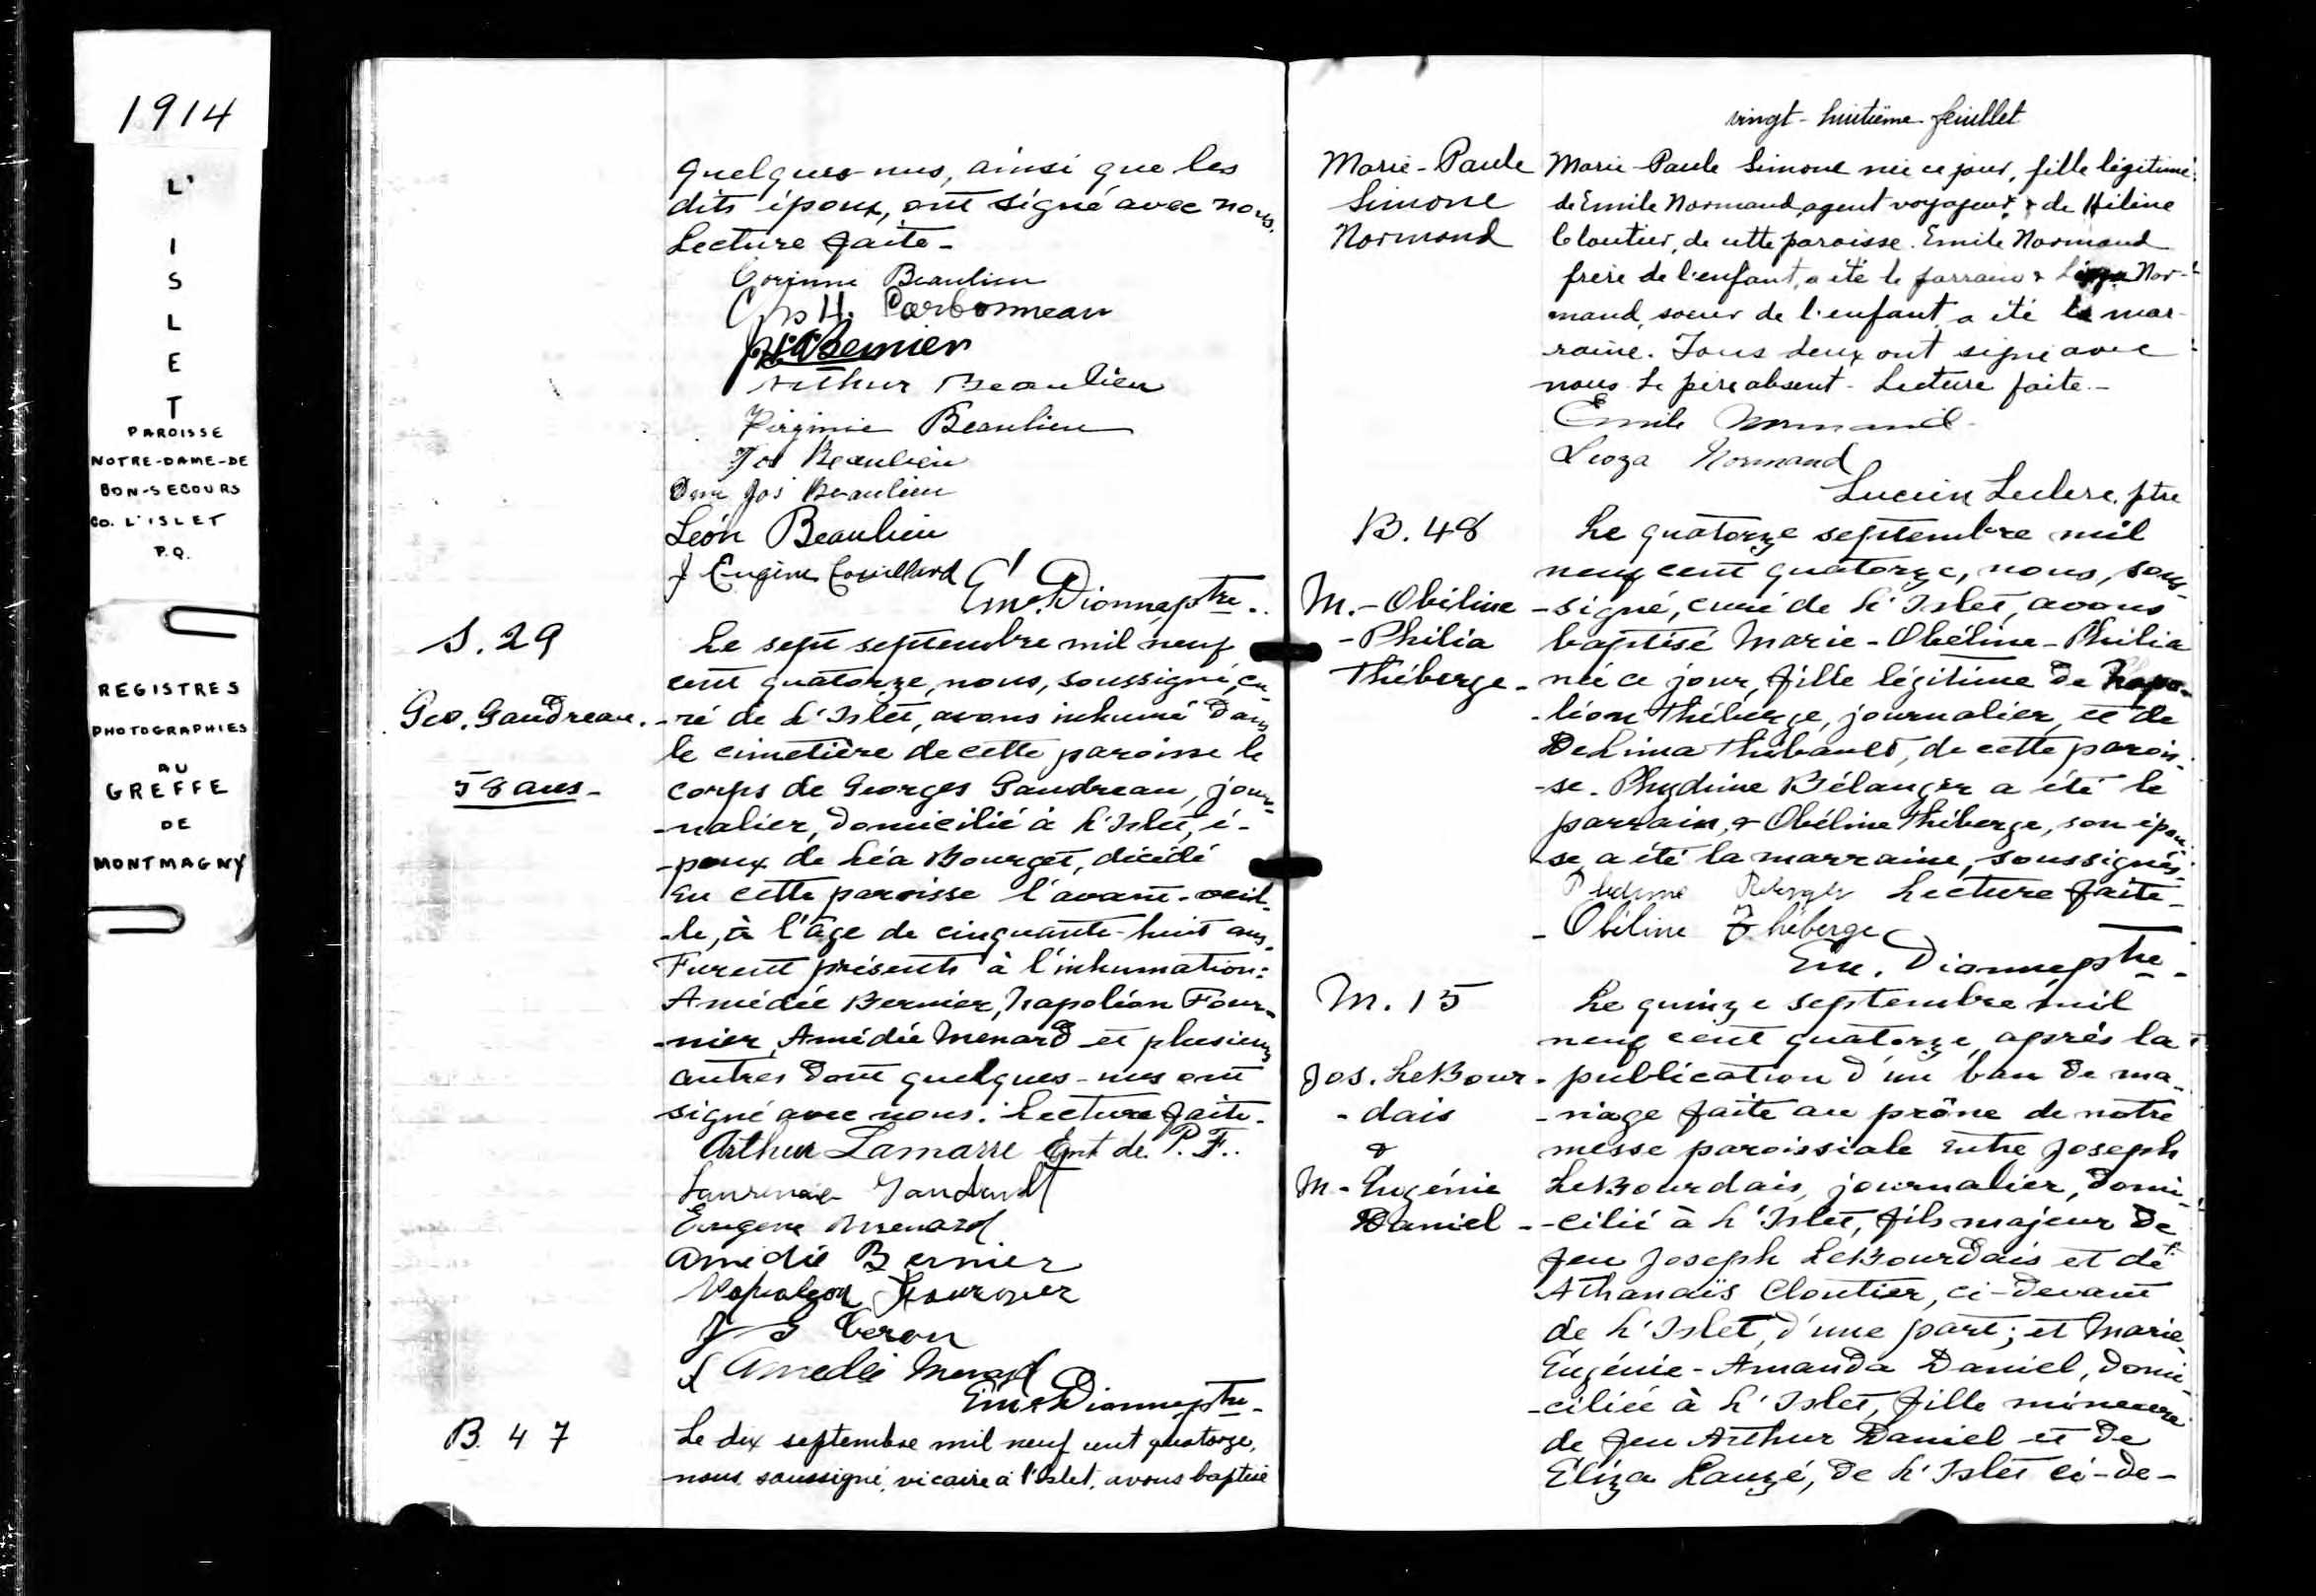 1914
L'
I
S
L
E
T
PAROISSE
NOTRE-DAME-DE
BON-SECOURS
CO. L'ISLET
P.Q.
REGISTRES
PHOTOGRAPHIES
AU
GREFFE
DE
MONTMAGNY
quelques-uns, ainsi que les
dits époux, ont signé avec nous.
Lecture faite -
Corinne Beaulieu
H. Carbonneau
Bernier
Arthur Beaulieu
Virginie Beaulieu
Jos Beaulieu
Dame Jos Beaulieu
Léon Beaulieu
J Eugène Couillard
Em. Dionne, ptre.
S. 29
Geo. Gaudreau.
58 ans -
Le sept septembre mil neuf
cent quatorze, nous, soussigné, cu-
-ré de L'Islet, avons inhumé dans
le cimetière de cette paroisse le
corps de Georges Gaudreau, jour-
-nalier, domicilié à L'Islet, é-
-poux de Léa Bourget, décédé
en cette paroisse l'avant-veil-
-le, à l'âge de cinquante-huit ans.
Furent présents à l'inhumation:
Amédée Bernier, Napoléon Four-
-nier, Amédée Menard et plusieurs
autres dont quelques-uns ont
signé avec nous. Lecture faite.
Arthur Lamarre de P. F..
Eugene Menard
Amédé Bernier
Napoleon Fournier
J Caron
Amedée Menard
Em. Dionne, ptre.
B. 47
Le dix septembre mil neuf cent quatorze,
nous soussigné, vicaire à l'Islet, avons baptisé
vingt-huitième feuillet
Marie-Paule
Simone
Normand
Marie-Paule Simone née ce jour, fille légitime
de Emile Normand, agent voyageur, & de Héline
Cloutier, de cette paroisse. Emile Normand
frère de l'enfant, a été le parrain & Nor-
mand, soeur de l'enfant, a été la mar-
raine. Tous deux ont signé avec
nous. Le père absent. Lecture faite.-
Emile Normand
Leoza Normand
Lucien Leclerc, ptre
B. 48
M. - Obéline
- Philia
Théberge -
Le quatorze septembre mil
neuf cent quatorze, nous, sous-
-signé, curé de L'Islet, avons
baptisé Marie-Obéline-Philia
née ce jour, fille légitime de Napo-
-léon Théberge, journalier, et de
Delima Thibault, de cette parois-
-se. Phydime Bélanger a été le
parrain, & Obéline Théberge, son épou-
-se, a été la marraine, soussignés.
Lecture faite -
Obéline Théberge
Em. Dionne, ptre.
M. 15
Jos. LeBour-
- dais
&
M - Eugénie
Daniel -
Le quinze septembre mil
neuf cent quatorze, après la
publication d'un ban de ma-
-riage faite au prône de notre
messe paroissiale entre Joseph
LeBourdais, journalier, domi-
-cilié à L'Islet, fils majeur de
feu Joseph LeBourdais et de
Athanaïs Cloutier, ci-devant
de L'Islet, d'une part; et Marie-
Eugénie-Amanda Daniel, domi-
-ciliée à L'Islet, fille mineure
de feu Arthur Daniel et de
Eliza Lauzé, de L'Islet ci-de-